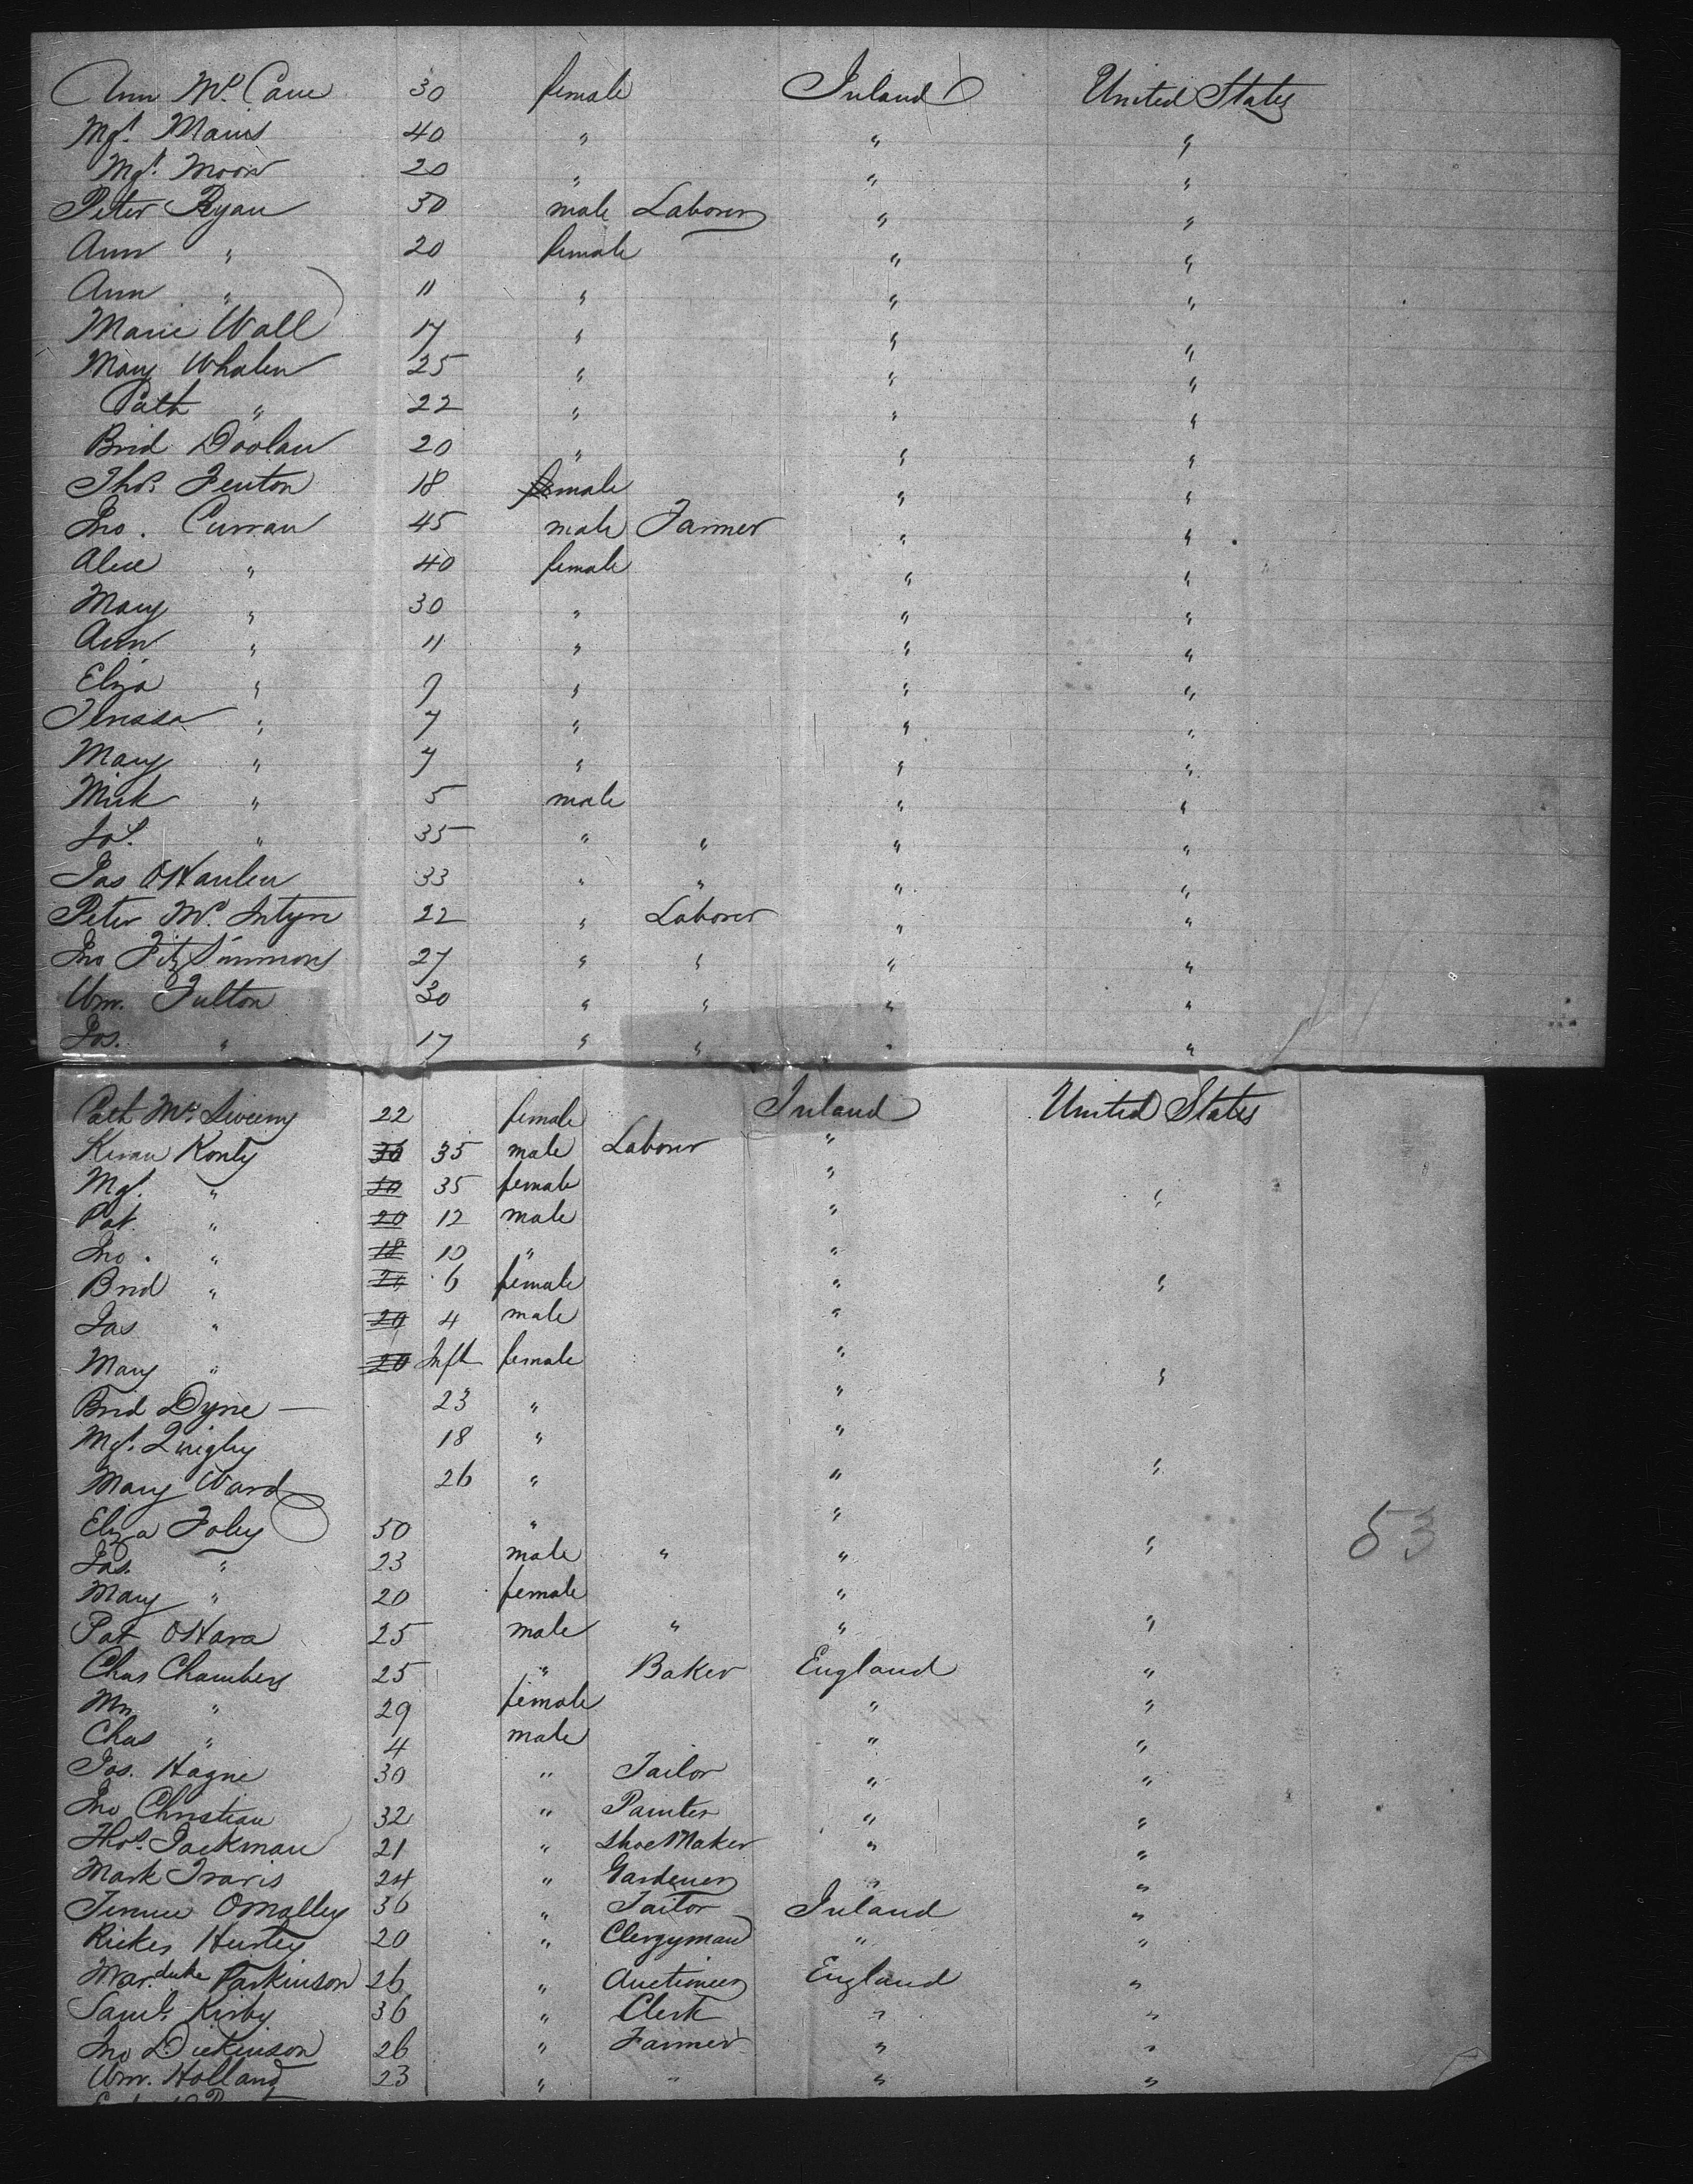 Ann Mc. Cane 30 female Ireland United States
Mgt. Mains 40 " " "
Mgt. Moore 20 " " "
Peter Ryan 30 male Laborer " "
Ann " 20 female " "
Ann " 11 " " "
Marie Wall 17 " " "
Mary Whalen 25 " " "
Cath " 22 " " "
Brid Doolan 20 " " "
Thos. Fenton 18 male " "
Jno. Curran 45 male Farmer " "
Alice " 40 female " "
Mary " 30 " " "
Ann " 11 " " "
Eliza " 9 " " "
Teressa " 7 " " "
Mary " 7 " " "
Mick " 5 male " "
" 35 " " " "
Jas O'Hanlen 33 " " " "
Peter Mc. Intyre 22 " Laborer " "
Jno FitzSimmons 27 " " " "
Wm. Fulton 30 " " " "
Jos. " 17 " " " "
Cath Mc Sweeny 22 female Ireland United States
Kieran 30 35 male Laborer "
Mgt. " 30 35 female " "
Pat. " 20 12 male "
Jno. " 18 10 " "
Brid " 20 6 female " "
Jas " 20 4 male "
Mary " 20 Inft female " "
Brid Dyne — 23 " "
Mgt. Quigley 18 " "
Mary Ward 26 " " "
Eliza Foley 50 " "
Jas. " 23 male " " "
Mary " 20 female "
Pat O'Hara 25 male " " "
Chas Chambers 25 " Baker England "
" 29 female " "
Chas " 4 male " "
Jos. Hagne 30 " Tailor " "
Jno Christian 32 " Painter " "
Thos. Jackman 21 " Shoe Maker " "
Mark Travis 24 " Gardener " "
O'Malley 36 " Tailor Ireland "
20 " Clergyman " "
Marduke Parkinson 26 " Auctioneer England "
Saml. Kirby 36 " Clerk " "
Jno Dickinson 26 " Farmer " "
Wm. Holland 23 " " " "
53